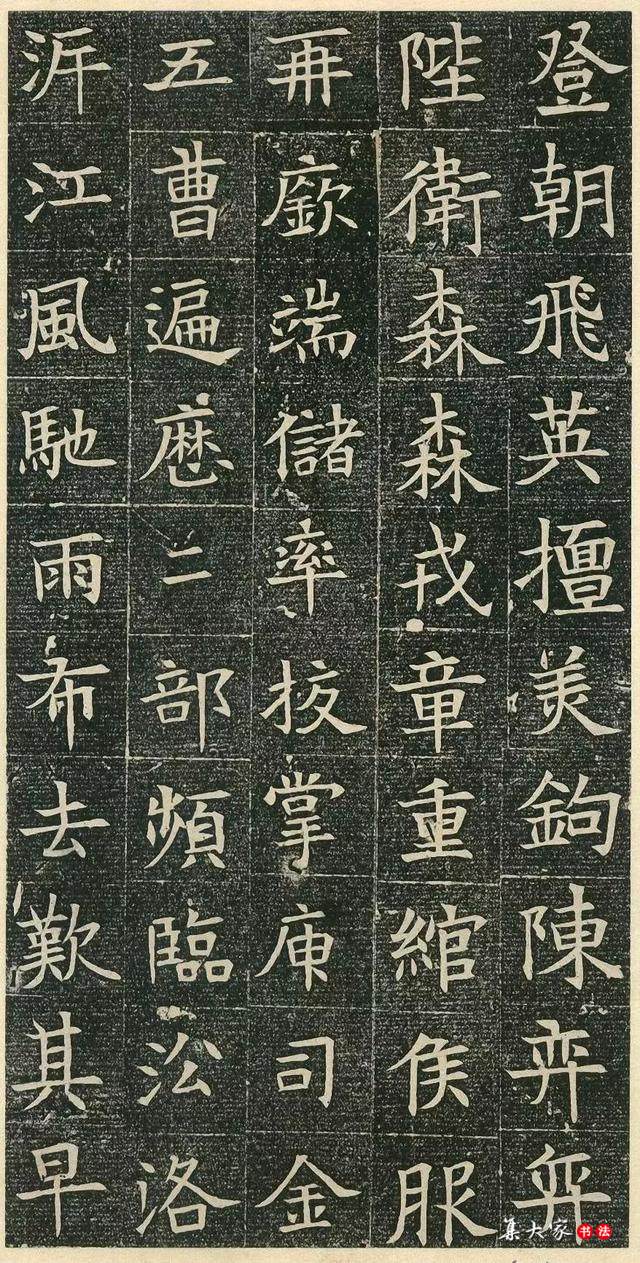 登朝飛英擅美鉤陳弈弈
陛衛森森戎章重綰侯服
再廞端儲率抜掌庫司金
五曹遍歷二部頻臨㳂洛
泝江風馳雨布去歎其早
集大家书法